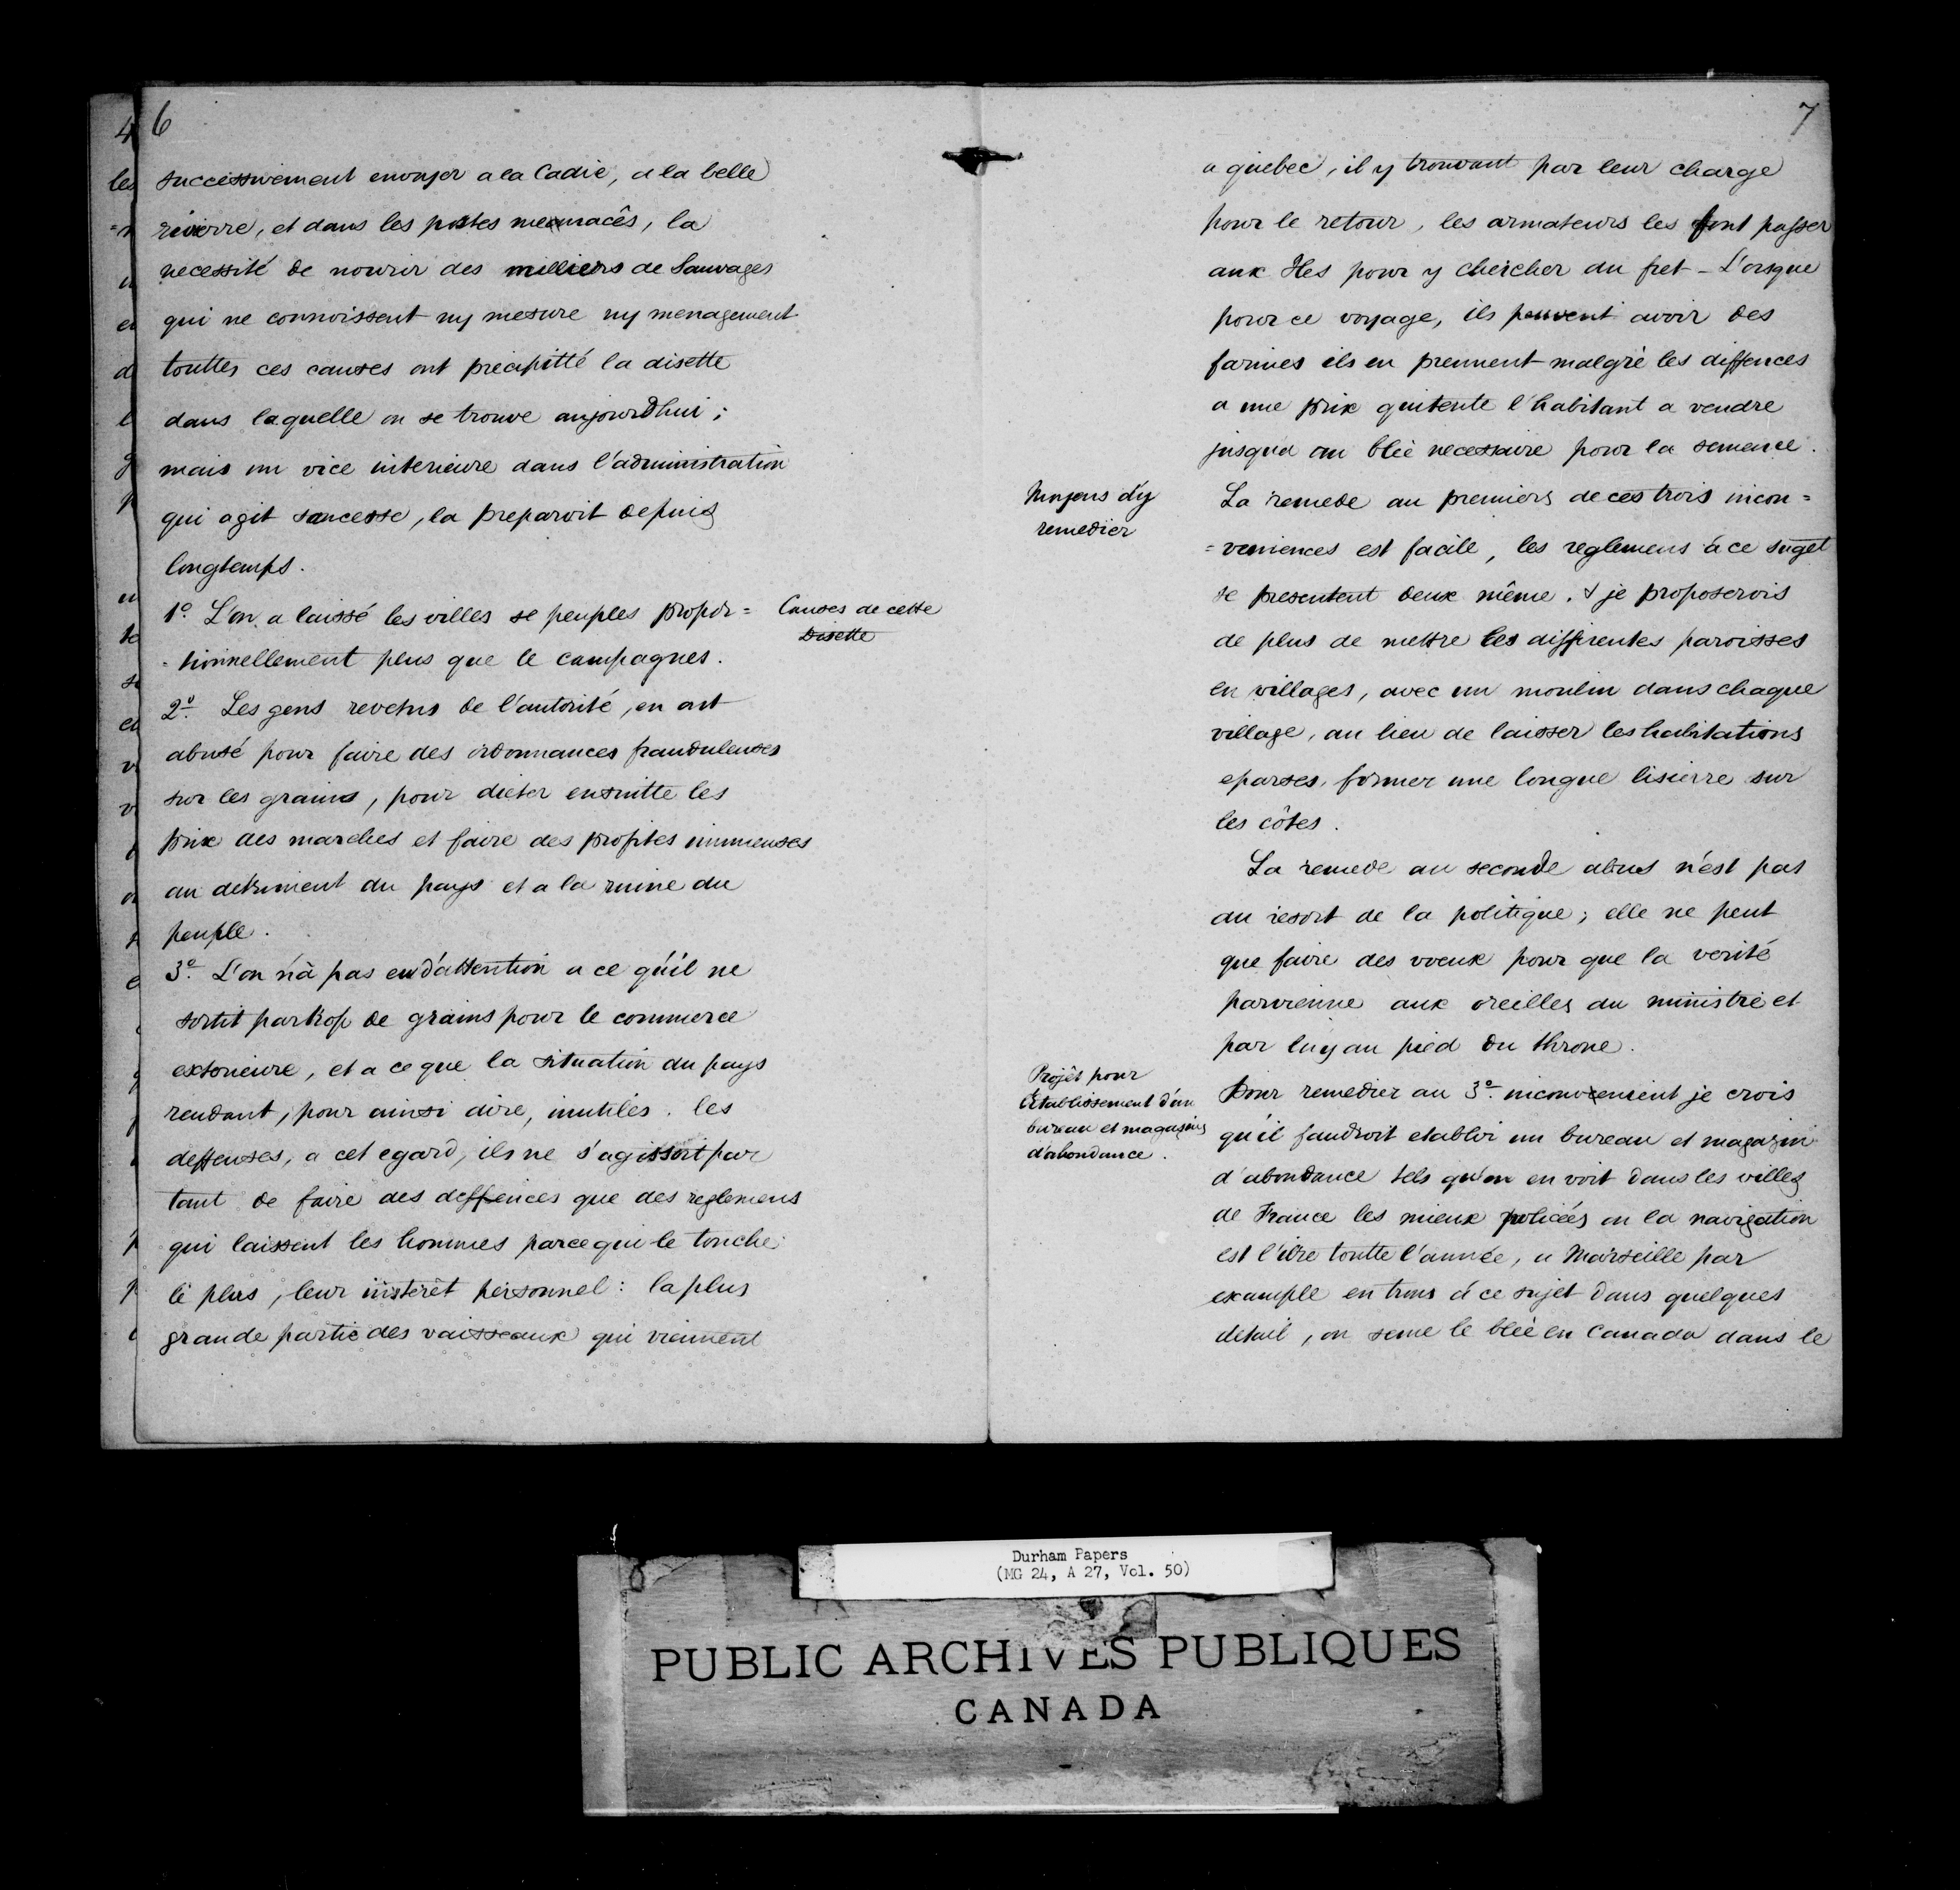 6
successivement envoyer a la Cadie, a la belle
rivierre, et dans les postes mennacês, la
necessité de nourir des milliers de Sauvages
qui ne connoissent ny mesure ny menagement
touttes ces causes ont precipitté la disette
dans laquelle on se trouve aujourdhui ;
mais un vice interieure dans l'administration
qui agit sancesse, la preparoit depuis
longtemps.
1º. L'on a laissé les villes se peuples propor=
Causes de cette
Disette
-tionnellement plus que le campagnes.
2º. Les gens revetus de l'autorité, en ont
abusé pour faire des ordonnances frauduleuses
sur les grains, pour dicter ensuitte les
prix des marches et faire des profites immenses
au detriment du pays et a la ruine du
peuple.
3º. L'on n'à pas eu d'attention a ce qu'il ne
sortit partrop de grains pour le commerce
exterieure, et a ce que la situation du pays
rendant, pour ainsi dire, inutiles. les
deffenses, a cet egard, ils ne s'agissoit par
tant de faire des deffences que des reglemens
qui laissent les hommes parce qui le touche
le plus, leur interêt personnel : la plus
grande partie des vaisseaux qui viennent
7
a quebec, il y trouvant par leur charge
pour le retour, les armateurs les font passer
aux Iles pour y chercher du fret - L'orsque
pour ce voyage, ils peuvent avoir des
farines ils en prennent malgré les diffences
a une prix quitente l'habitant a vendre
jusqua au bleè necessaire pour la semence.
Moyens d'y
remedier
La remede au premiers de ces trois incon=
=veniences est facile, les reglemens á ce suget
se presentent deux même. & je proposerois
de plus de mettre les differentes paroisses
en villages, avec un moulin dans chaque
village, au lieu de laisser les habitations
eparses, former une longue lisierre sur
les côtes.
La remede au seconde abus n'est pas
du resort de la politique ; elle ne peut
que faire des voeux pour que la verité
parvienne aux oreilles du ministre et
par luy au pied du throne.
Projêt pour
Etablissement d'un
bureau et magasins
d'abondance.
Pour remedier au 3º. inconvenient je crois
qu'il faudroit etablir un bureau et magazin
d'abondance tels qu'on en voit dans les villes
de France les mieux policées ou la navigation
est l'ibre toutte l'année, a Marseille par
example entrons á ce sujet dans quelques
detail, on seme le bleè en Canada dans le
Durham Papers
(MG 24, A 27, Vol. 50)
PUBLIC ARCHIVES PUBLIQUES
CANADA